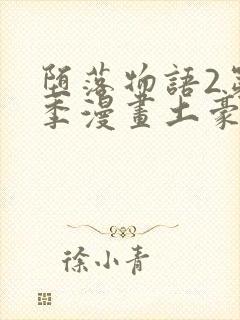 堕落物語2第
季漫畫土豪
徐小青